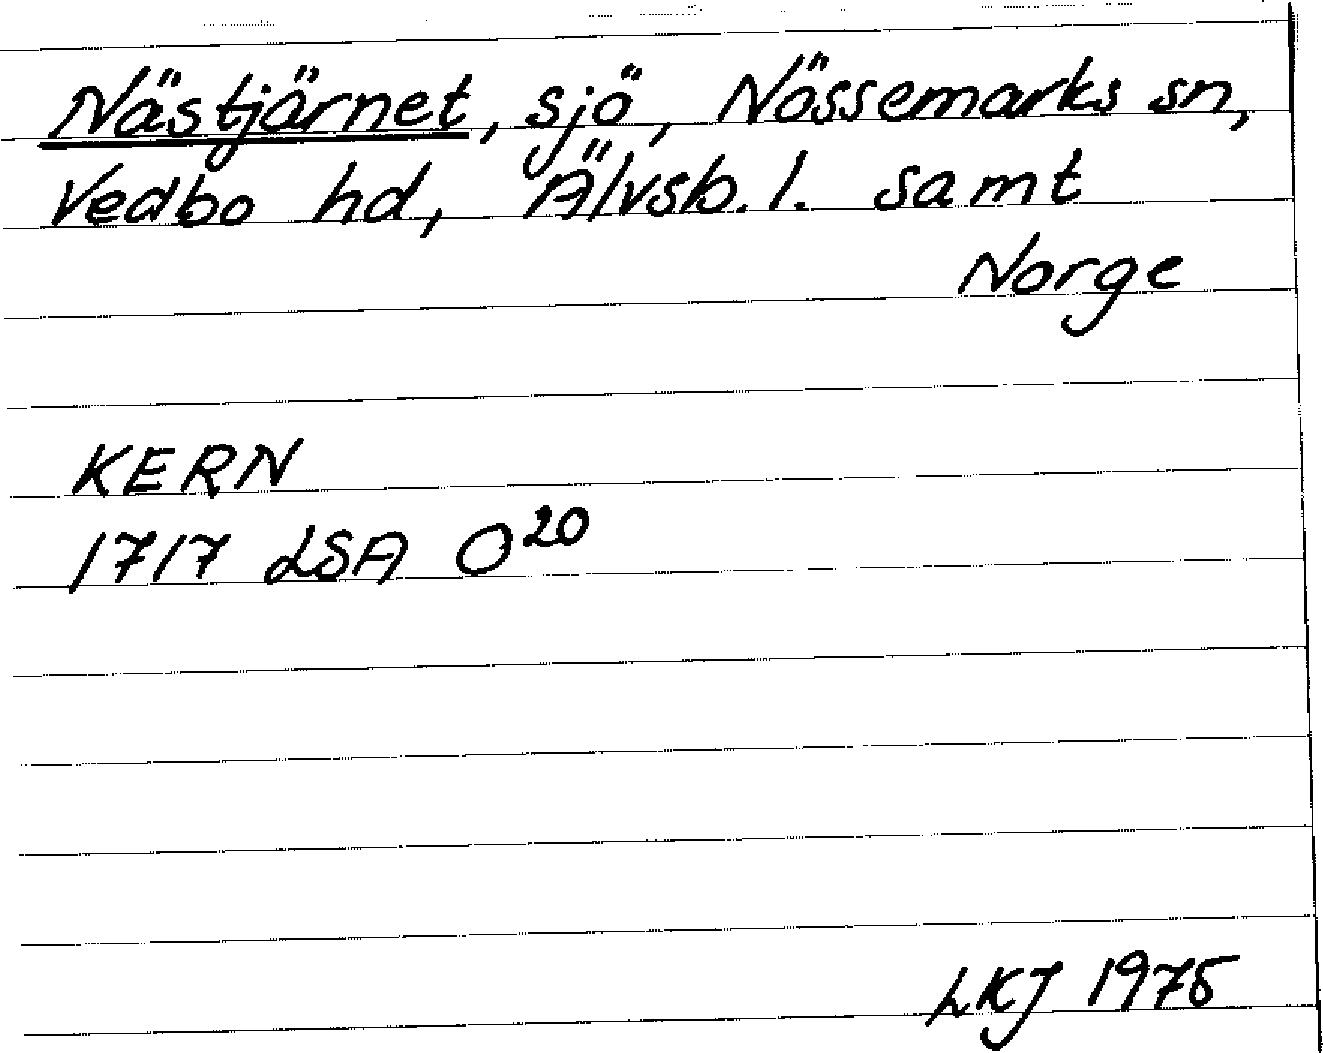 Nästjärnet, sjö, Nössemarks sn,
Vedbo hd, Älvsb. l. samt
Norge
KERN
1717 LSA O²⁰
LKJ 1975